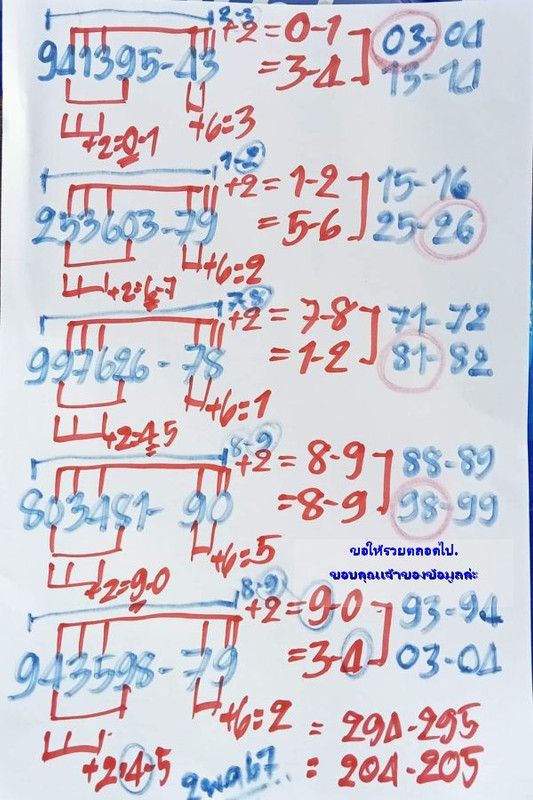 2-3
+2 = 0-1 03-04
941395-43 = 3-4 13-14
+2=0-1 +6=3
1-2
+2 = 1-2 15-16
253603-79 = 5-6 25-26
+2=6-7 +6=2
7-8
+2 = 7-8 71-72
997626-78 = 1-2 81-82
+2=4-5 +6=1
8-9
+2 = 8-9 88-89
803481-90 = 8-9 98-99
+2=9-0 +6=5
ขอให้รวยตลอดไป.
ขอบคุณเจ้าของข้อมูลค่ะ
8-9
+2 = 9-0 93-94
943598-79 = 3-4 03-04
+6=2 = 294-295
+2=4-5 = 204-205